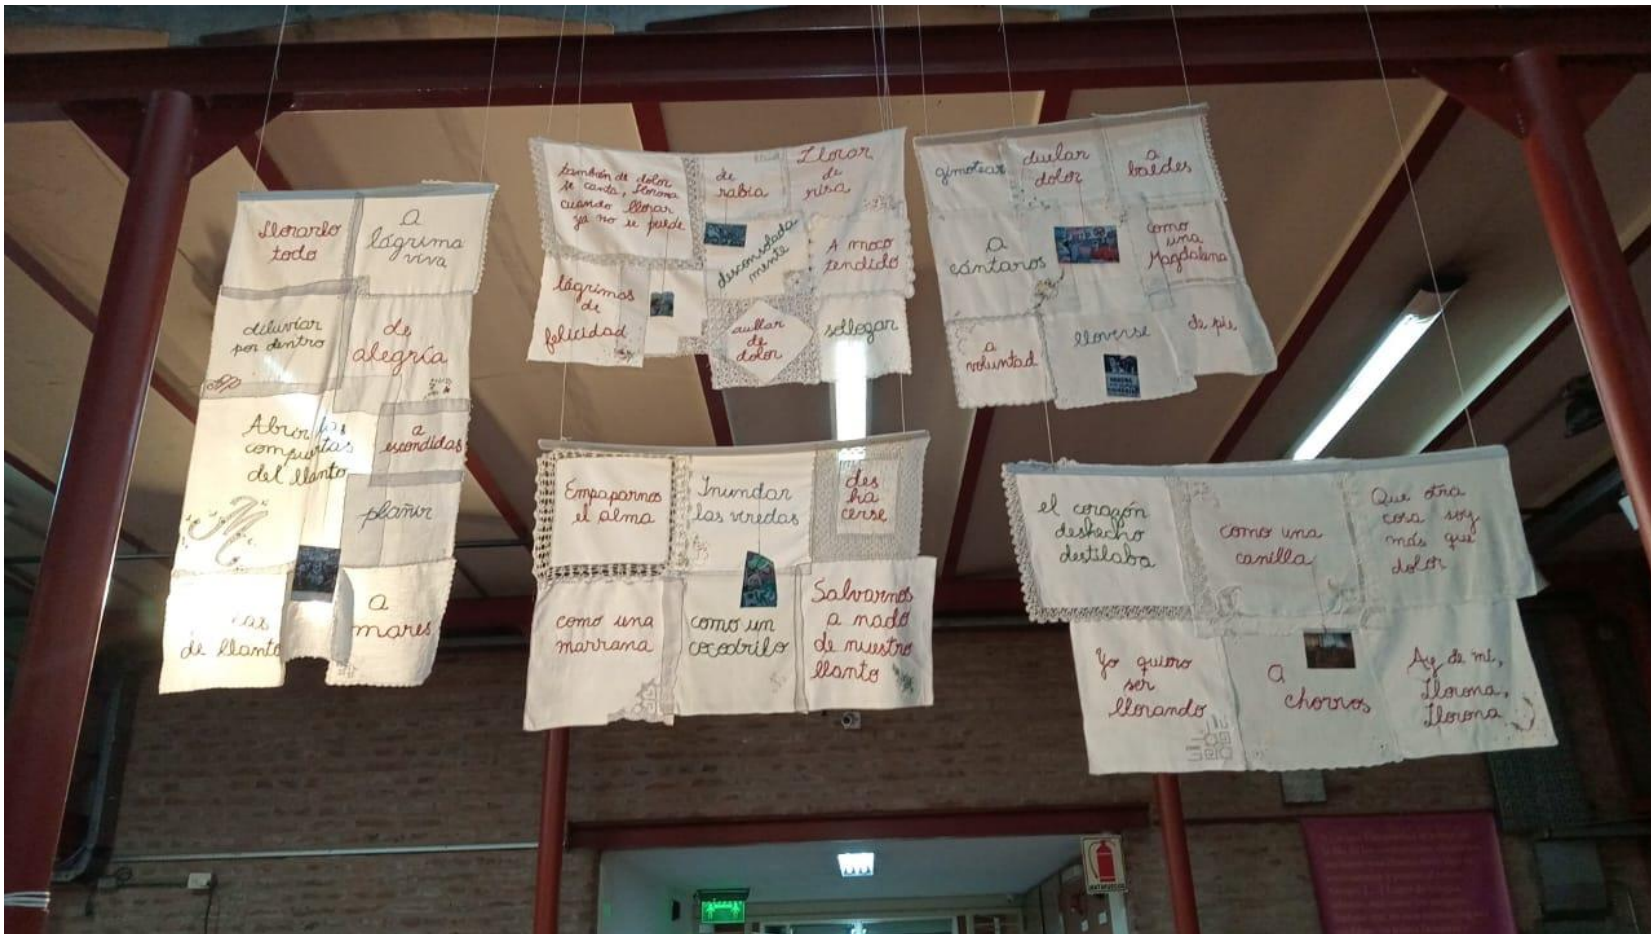 Llorarlo
todo
a
lágrima
viva
diluviar
por dentro
de
alegría
Abrir las
compuertas
del llanto
a
escondidas
M
plañir
de llanto
a
mares
también de dolor
se canta, llorona
cuando llorar
ya no se puede
de
rabia
Llorar
de
risa
desconsolada
mente
A moco
tendido
lágrimas
de
felicidad
aullar
de
dolor
sollozar
gimotear
duelar
dolor
a
baldes
a
cántaros
como
una
Magdalena
a
voluntad
lloverse
de pie
Empaparnos
el alma
Inundar
las veredas
des
ha
cerse
como una
marrana
como un
cocodrilo
Salvarnos
a nado
de nuestro
llanto
el corazón
deshecho
destilaba
como una
canilla
Que otra
cosa soy
más que
dolor
Yo quiero
ser
llorando
a
chorros
Ay de mí,
llorona,
llorona
MATAFUEGOS